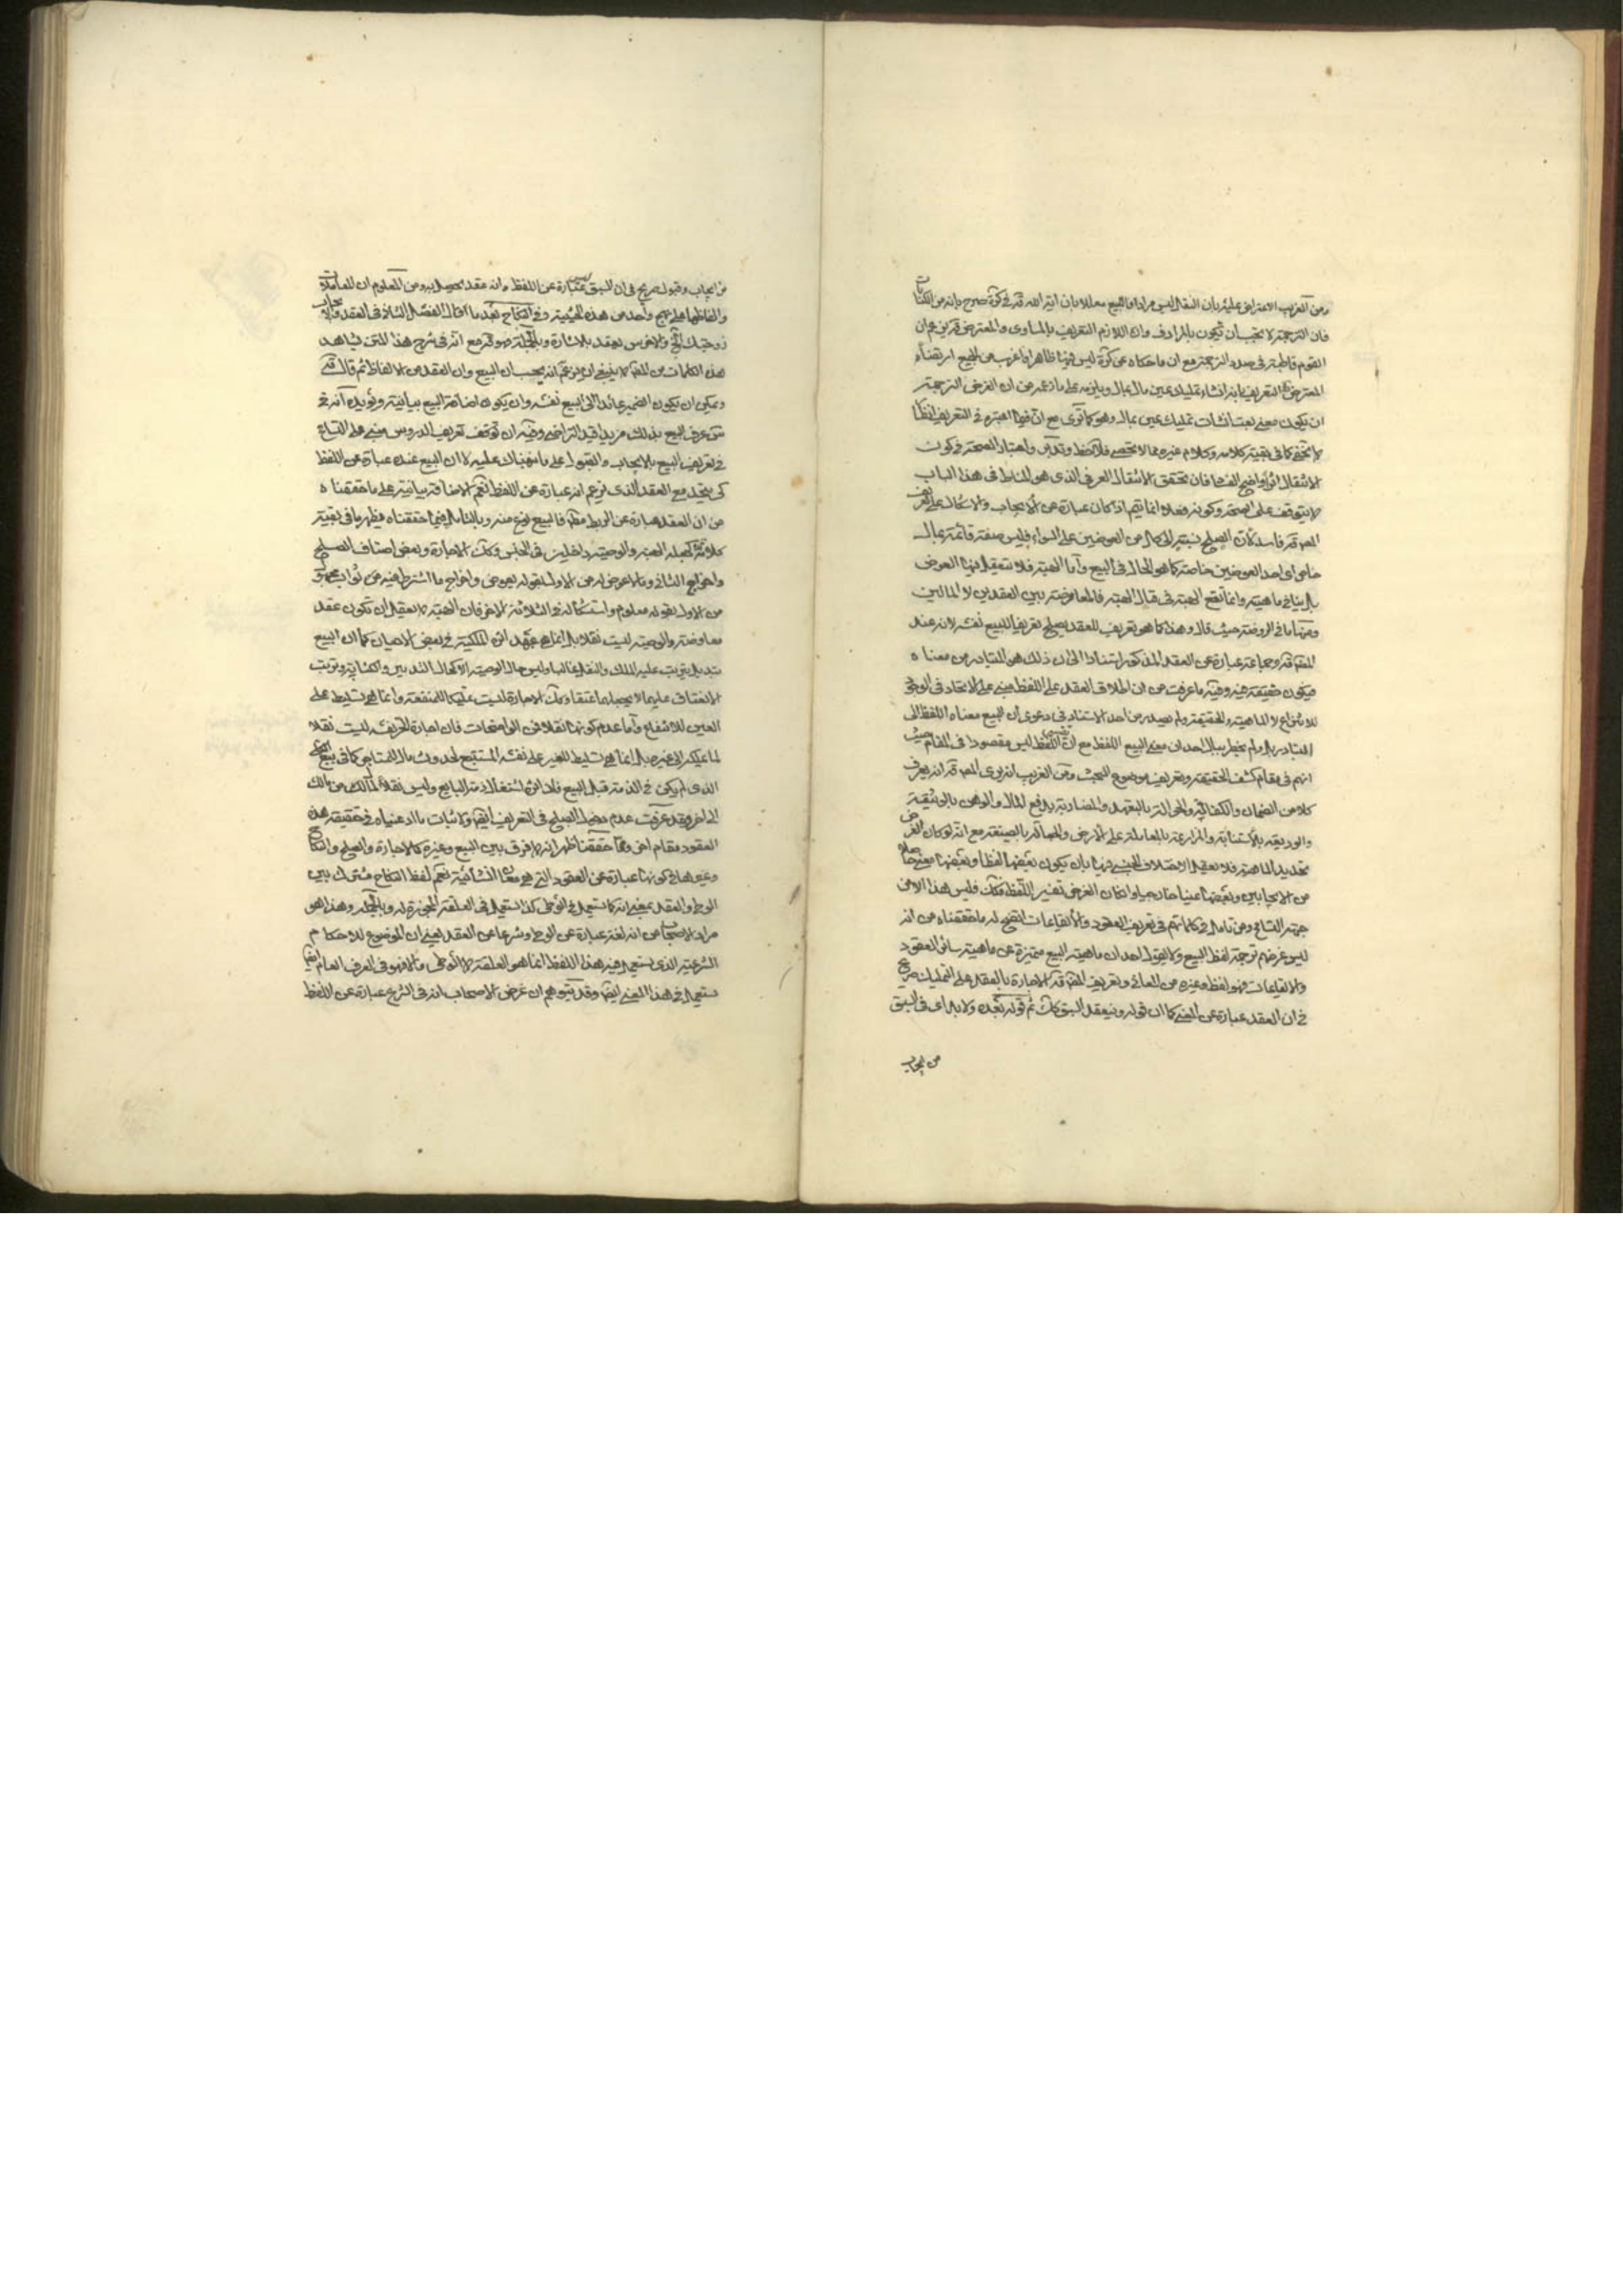 ومن الغريب الاعتراض عليه بان النقل ليس مرادفا للبيع معللا بان اية الله قده في كره صرح بانه من الكنايات
فان الترجمة لا يجب ان تكون بالمرادف وان اللازم التعريف بالمساوى والمعترض قرين عم ان
القوم قاطبة في صدد الترجمة مع ان ما حكاه عن كره ليس فيها ظاهرا واغرب من الجميع ارتضاء
المعترض التعريف بانه انشاء تمليك عين بمال ويلزمه على ما زعمه من ان الغرض الترجمة
ان يكون معنى بعت انشات تمليك عين بمال وهو كما ترى مع ان فيما اعتبره في التعريف انظارا
لا تخفى كما في بقية كلامه وكلام غيره مما لا تحصى فلاحظ وتدبر واعتبار الصحة في كون
الانتقال اثرا واضح الفساد فان تحقق الانتقال العرفي الذى هو المناط في هذا الباب
لا يتوقف على الصحة وكونه فعلا انما يتم اذا كان عبارة عن الايجاب والاشكال على تعريف
المص قده فاسد لان الصلح نسبته الى كل من العوضين على السواء وليس صفة قائمة بمال
خاص اى احد العوضين خاصة كما هو الحال في البيع واما الهبة فلا يتعقل فيها العوض
بل ينافي ماهيته وانما تقع الهبة في قبال الهبة فالمعاوضة بين العقدين لا المالين
ومنها ما في الروضة حيث قال وهذا كما هو تعريف للعقد يصلح تعريفا للبيع نفسه لانه عند
المص قده وجماعة عبارة عن العقد المذكور استنادا الى ان ذلك هو المتبادر من معناه
فيكون حقيقة فيه وفيه ما عرفت من ان اطلاق العقد على اللفظ مبنى على الاتحاد في الوجود
للانتزاع لا الماهية والحقيقة ولم يصدر من احد الاستناد في دعوى ان البيع معناه اللفظ الى
التبادر بل ولم يخطر ببال احد ان معنى البيع اللفظ مع ان تفسير اللفظ ليس مقصودا في المقام حيث
انهم في مقام كشف الحقيقة وتعريف موضوع البحث ومن الغريب انه يرى المص قده انه يعرف
كلا من الضمان والكفالة والحوالة بالتعهد والمضاربة بدفع المال والرهن بالوثيقة
والوديعة بالاستنابة والمزارعة بالمعاملة على الارض والمساقاة بالصيغة مع انه لو كان الغرض
تحديد الماهية فلا يعقل الاختلاف الجنسي فيها بان يكون بعضها لفظا وبعضها معنى حاصلا
من الايجابين وبعضها عينا خارجيا وان كان الغرض تفسير اللفظ فكك فليس هذا الا من
جهة التسامح ومن تامل في كلماتهم في تعريف العقود والايقاعات اتضح له ما حققناه من انه
ليس غرضهم ترجمة لفظ البيع ولا يقول احد ان ماهية البيع متميزة عن ماهية سائر العقود
والايقاعات فهو لفظ وغيره من المعاني وتعريف المص قده الاجارة بالعقد على التمليك صريح
في ان العقد عبارة عن المعنى كما ان قوله وينعقد السبق كك ثم قوله بعده ولا بد اى في السبق
من ايجاب
من ايجاب وقبول صريح في ان السبق ليس عبارة عن اللفظ وانه عقد يحصل به ومن المعلوم ان المعاملات
والفاظها على نهج واحد من هذه الحيثية وفي النكاح بعد ما قال الفصل الثاني في العقد فالايجاب
زوجتك الخ والاخرس يعقد بالاشارة وبالجملة صوقر مع انه في شرح هذا المتن يشاهد
هذه الكلمات من المص لا ينبغى ان يزعم انه يحسب ان البيع وان العقد من الالفاظ ثم قال قده
ويمكن ان يكون الضمير عائدا الى البيع نفسه وان يكون اضافة البيع بيانية ويؤيده انه في
س عرف البيع بذلك مزيدا قيد التراضى وفيه ان توقف تعريف الدروس مبنى على التسامح
في تعريف البيع بالايجاب والقبول على ما نبهناك عليه لا ان البيع عنده عبارة عن اللفظ
كى يتحد مع العقد الذى يزعم انه عبارة عن اللفظ نعم الاضافة بيانية على ما حققناه
من ان العقد عبارة عن الربط مطلقا فالبيع نوع منه وبالتامل فيما حققناه يظهر ما في بقية
كلامه كجعله الهبة والوصية داخلين في الجنس وكك الاجارة وبعض اصناف الصلح
واخراج الثاني وما لا عوض له من الاول بقوله بعوض واخراج ما اشترط فيه من ثواب مجهول
من الاول بقوله معلوم واستشكاله في الثلاثة الاخر فان الهبة لا يعقل ان تكون عقد
معاوضة والوصية ليست نقلا بل انما هى عهد اثره الملكية في بعض الاحيان كما ان البيع
تبديل يترتب عليه الملك والنقل غالبا وليس حال الوصية الا كحال التدبير والكتابة وترتب
الانعتاق عليهما لا يجعلهما عتقا وكك الاجارة ليست تمليكا للمنفعة وانما هى تسليط على
العين للانتفاع واما عدم كونها نقلا فمن الواضحات فان اجارة الحر نفسه ليست نقلا
لما يملك الى غيره بل انما هى تسليط للغير على نفسه المستتبع لحدوث مال للمستاجر كما في بيع الكلى
الذى لم يكن في الذمة قبل البيع فان اثره اشتغال ذمة البايع وليس نقلا لمالك من مالك
الى اخر وقد عرفت عدم دخول الصلح في التعريف ايضا ولاثبات ما ادعيناه في حقيقة هذه
العقود مقام اخر ومما حققنا ظهر انه لا فرق بين البيع وغيره كالاجارة والصلح والنكاح
وغيرها في كونها عبارة عن العقود التي هى معان انشائية نعم لفظ النكاح مشترك بين
الوطى والعقد بمعنى انه كما يستعمل في الوطى كذا يستعمل في العلقة المجوزة له وبالجملة وهذا هو
مراد الاصحاب من انه لغة عبارة عن الوطى وشرعا عن العقد يعنى ان الموضوع للاحكام
الشرعية الذى يستعمل فيه هذا اللفظ انما هو العلقة لا الوطى والا فهو في العرف العام ايضا
يستعمل في هذا المعنى ايضا وقد يتوهم ان غرض الاصحاب انه في الشرع عبارة عن اللفظ